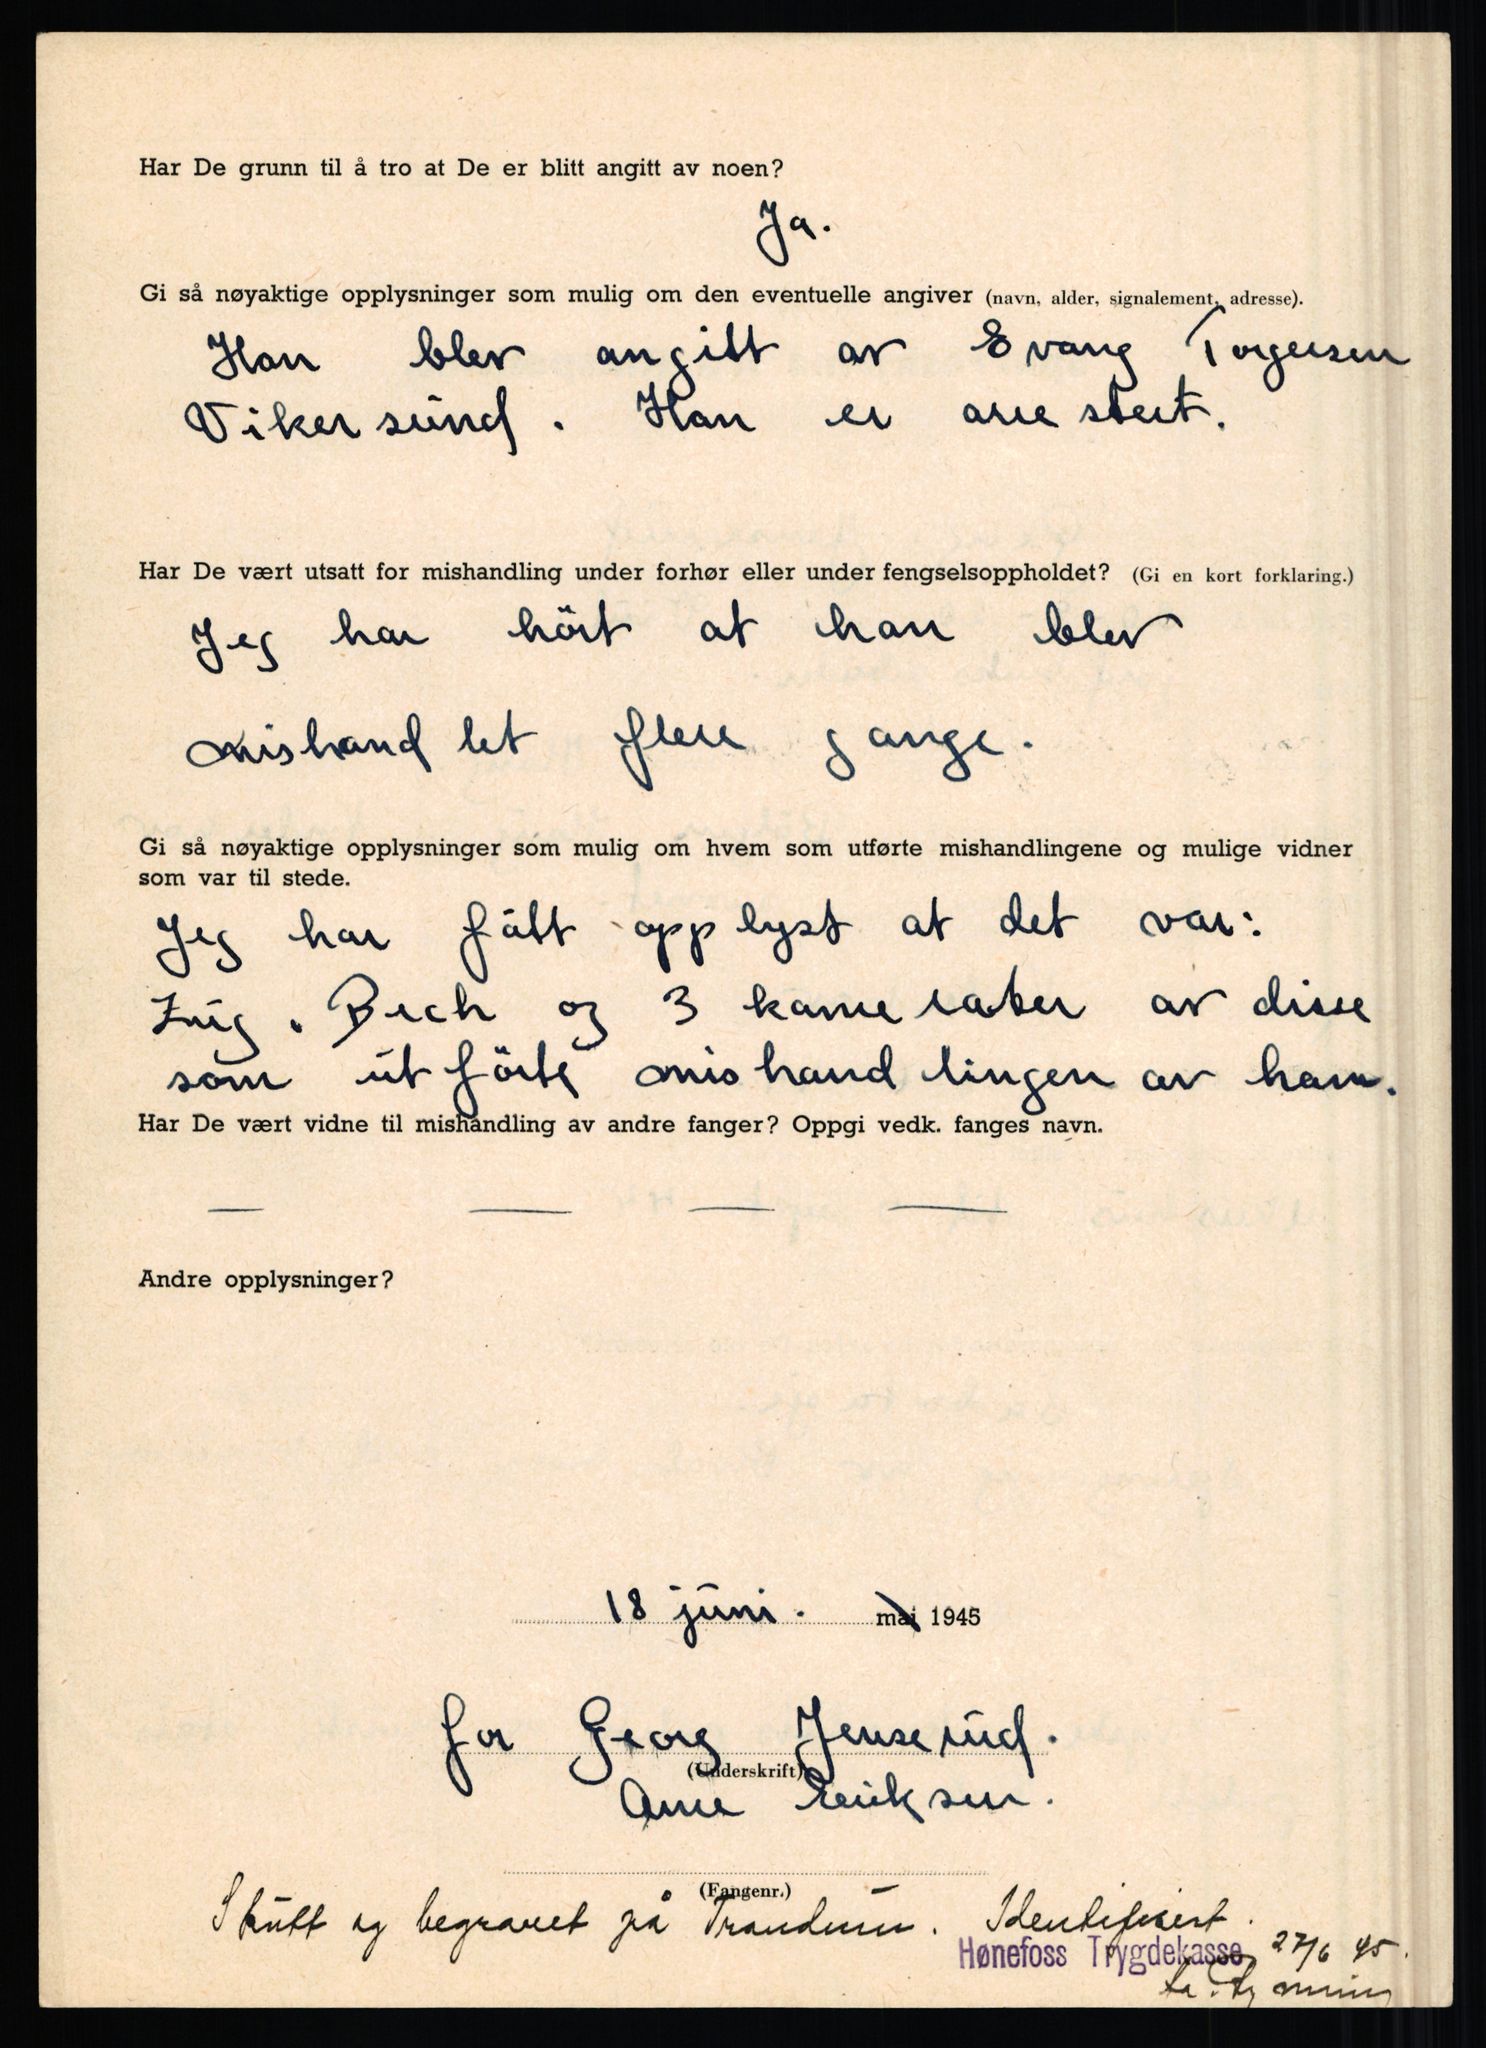 Har De grunn til å tro at De er blitt angitt av noen?
Ja.
Gi så nøyaktige opplysninger som mulig om den eventuelle angiver (navn, alder, signalement, adresse).
Han blev angitt av Evang Torgersen
Vikersund. Han er arrestert.
Har De vært utsatt for mishandling under forhør eller under fengselsoppholdet? (Gi en kort forklaring.)
Jeg har hört at han blev
mishandlet flere gange.
Gi så nøyaktige opplysninger som mulig om hvem som utførte mishandlingene og mulige vidner
som var til stede.
Jeg har fått opplyst at det var:
Zug. Bech og 3 kamerater av disse
som utförte mishandlingen av ham.
Har De vært vidne til mishandling av andre fanger? Oppgi vedk. fanges navn.
— — — —
Andre opplysninger?
18 juni. mai 1945
for Georg Jenserud.
(Underskrift)
Arne Eriksen.
(Fangenr.)
Skutt og begravet på Trandum. Identifisert.
Hønefoss Trygdekasse 27/6 45.